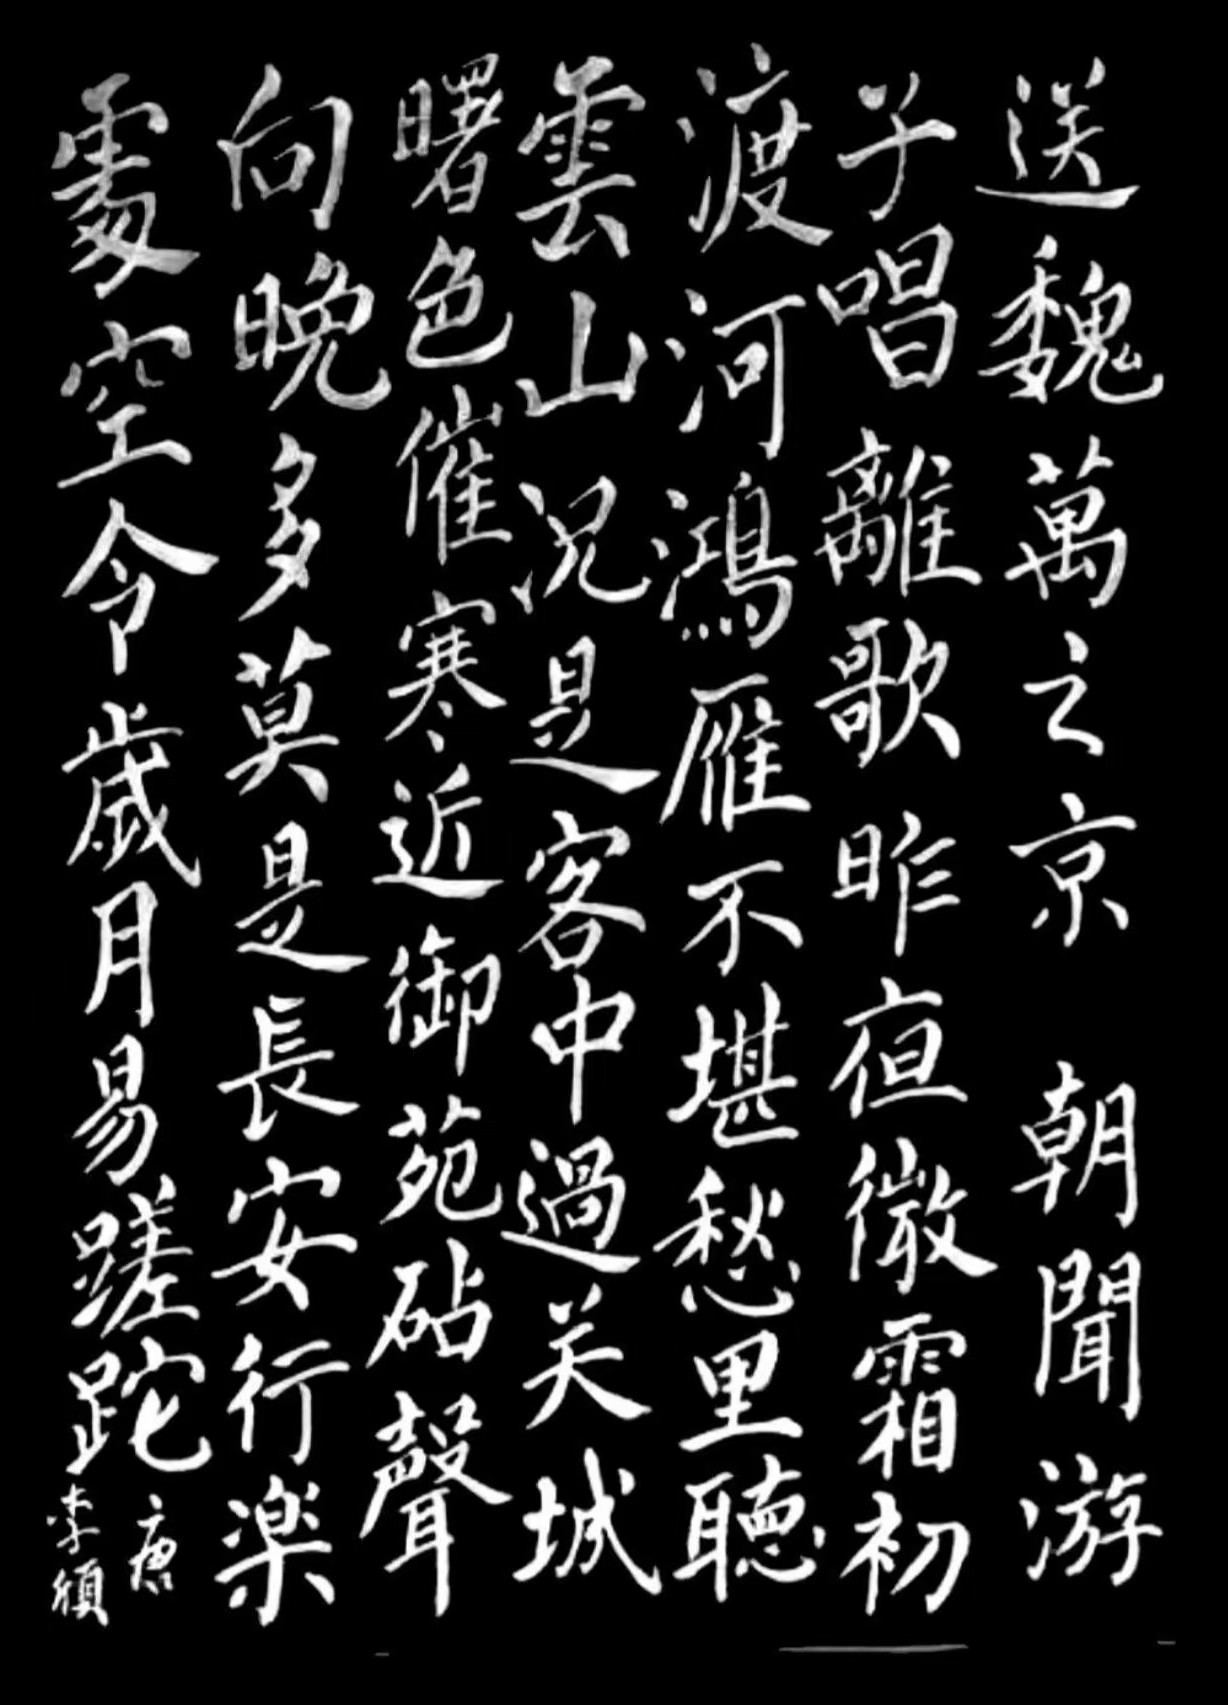 送魏萬之京 朝聞游
子唱離歌昨夜微霜初
渡河鴻雁不堪愁里聽
雲山況是客中過关城
曙色催寒近御苑砧聲
向晚多莫是長安行楽
處空令歲月易蹉跎
唐
李頎